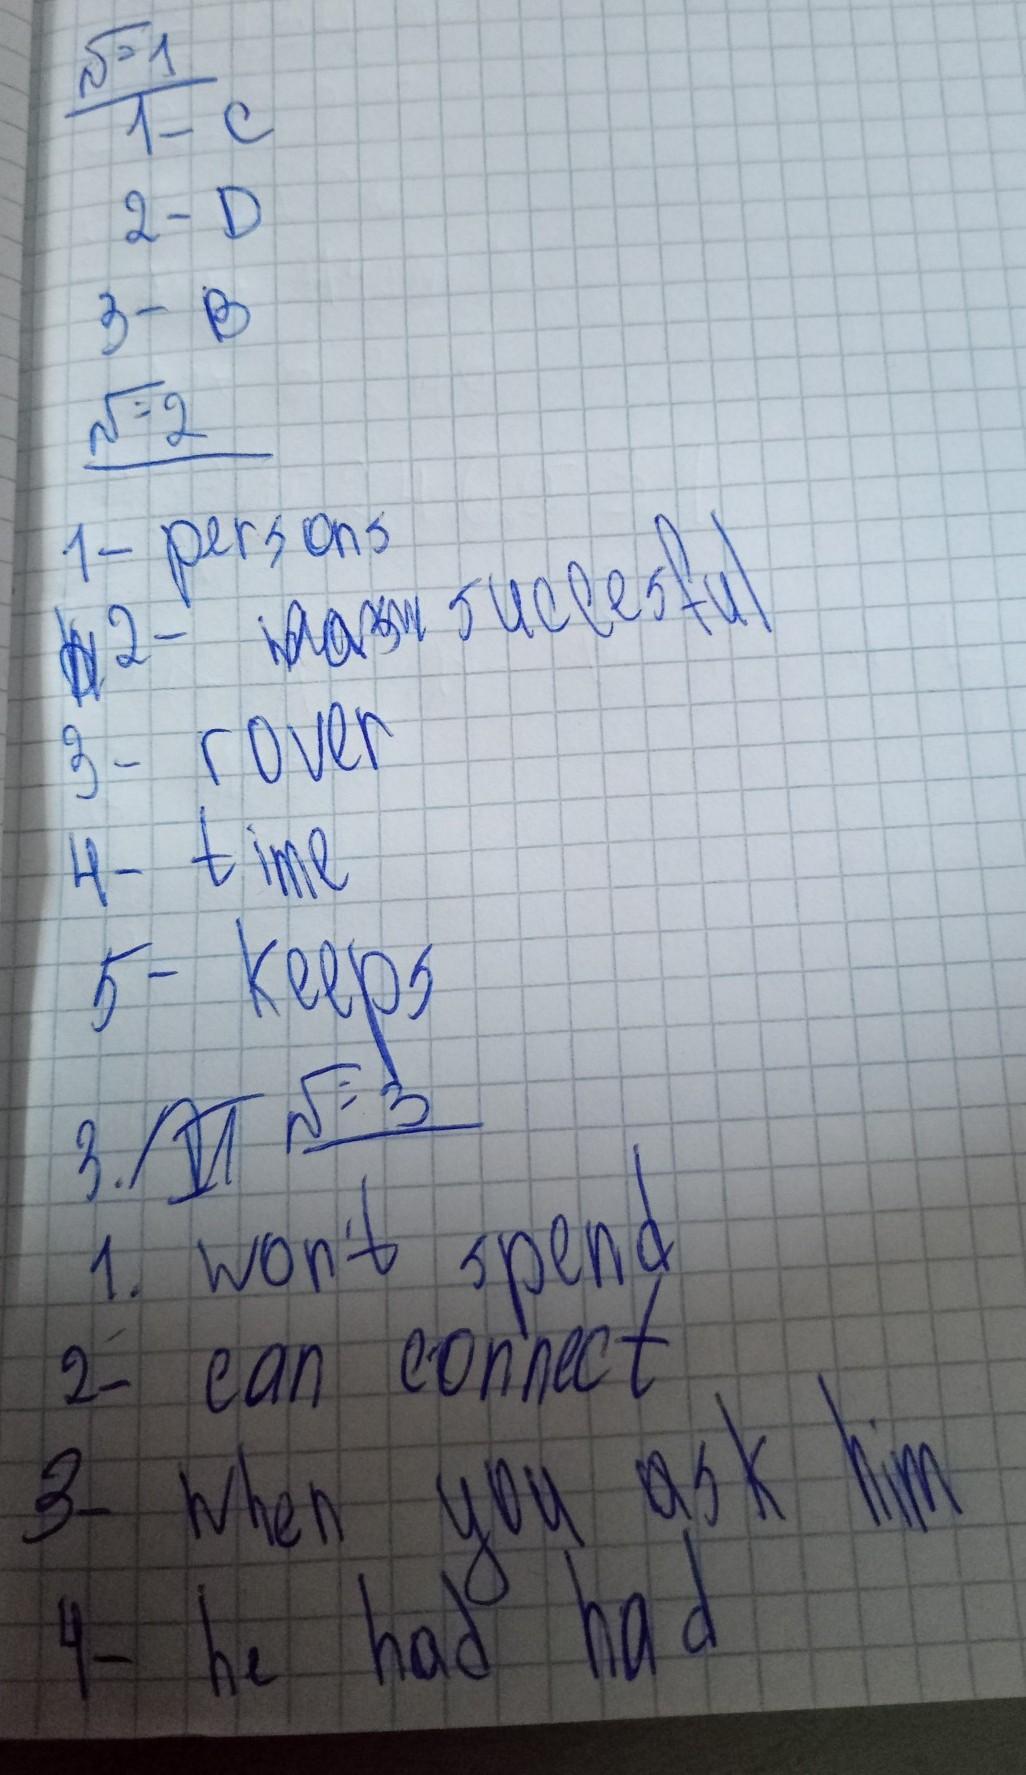 №1
1- C
2- D
3- B
№2
1- persons
2- succesful
3- rover
4- time
5- keeps
№3
3. VI
1. won't spend
2- can connect
3- when you ask him
4- he had had